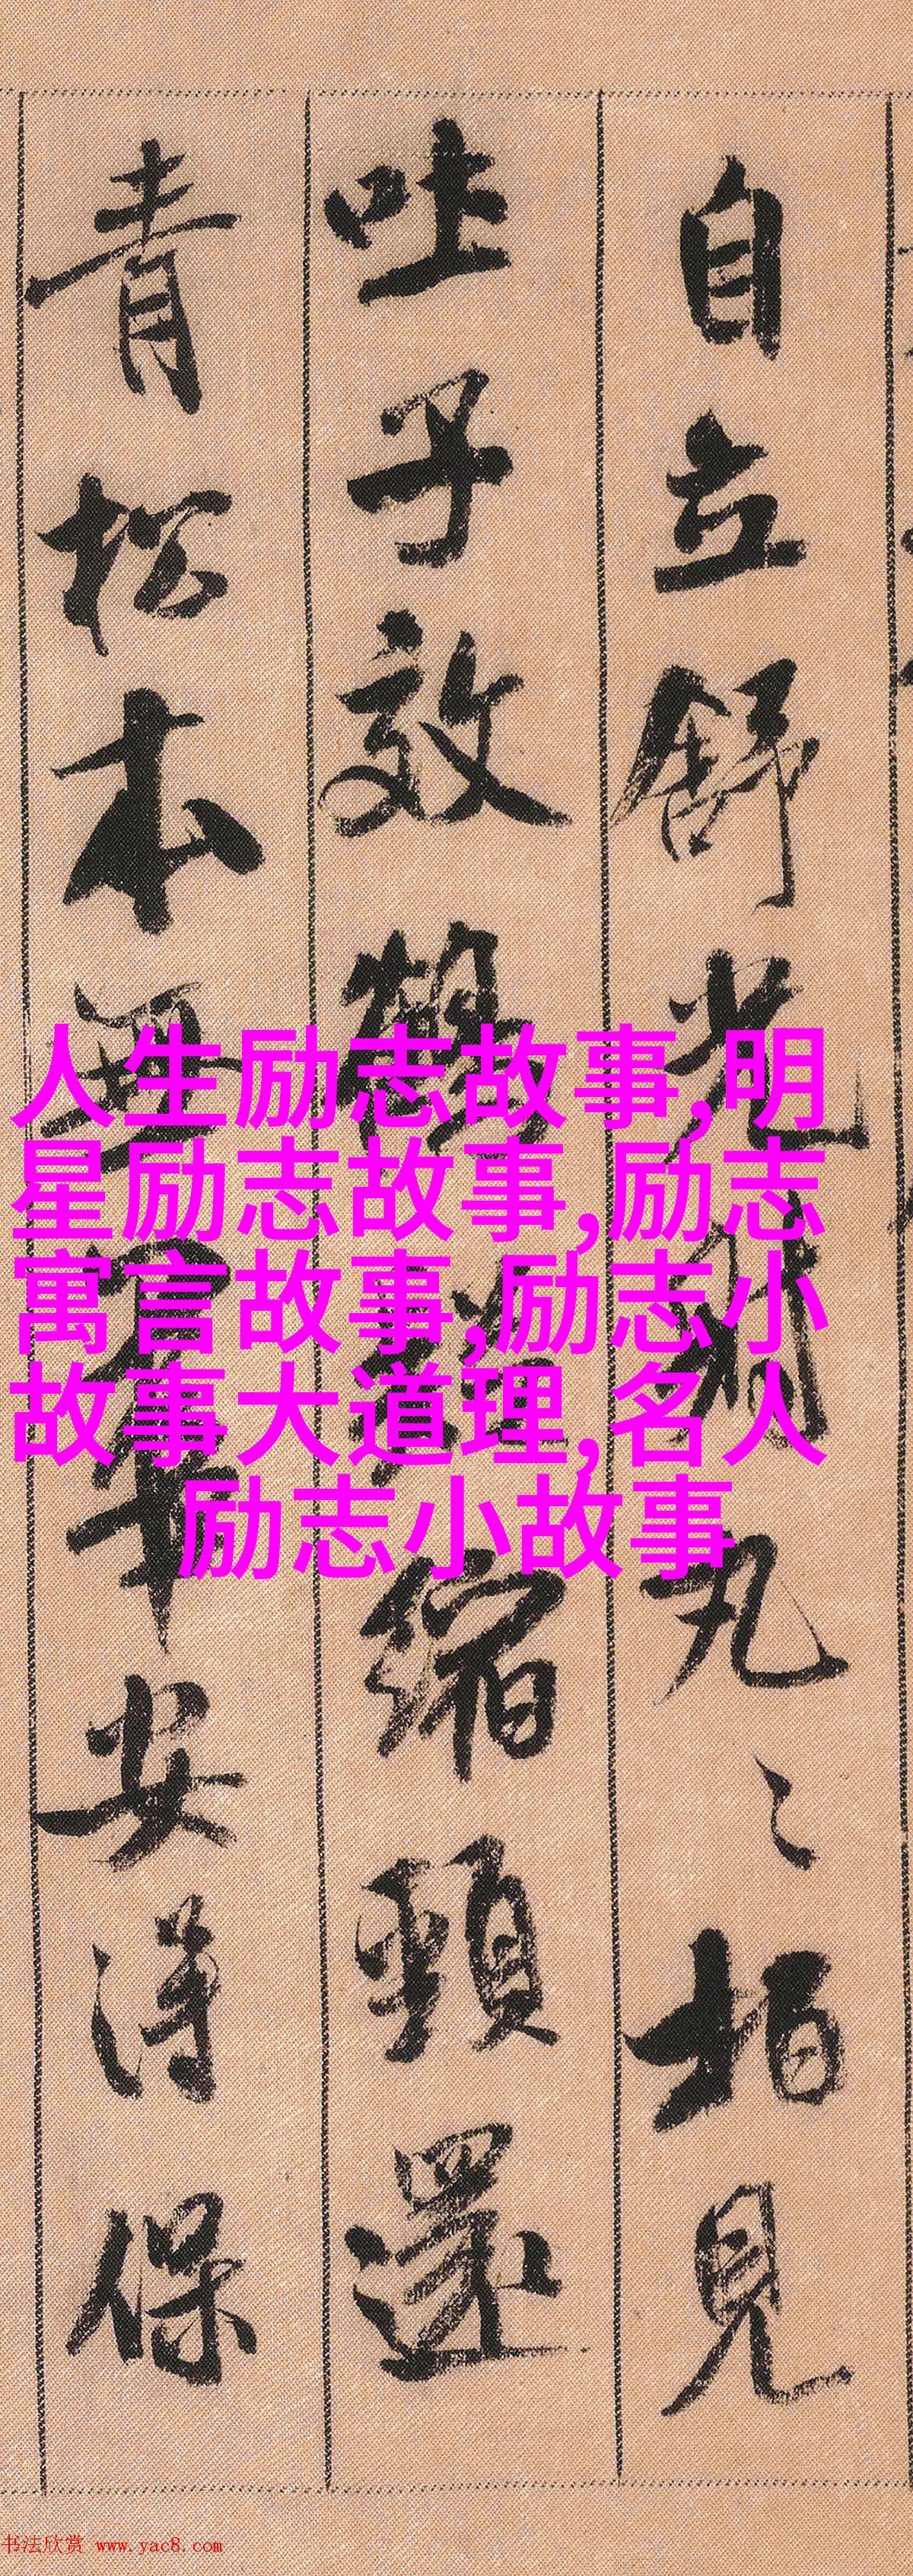 自立舒光射丸〻柏見
吐子效鶴縮頸還
青松本無華安得保
人生励志故事,明
星励志故事,励志
寓言故事,励志小
故事大道理,名人
励志小故事
书法欣赏 www.yac8.com